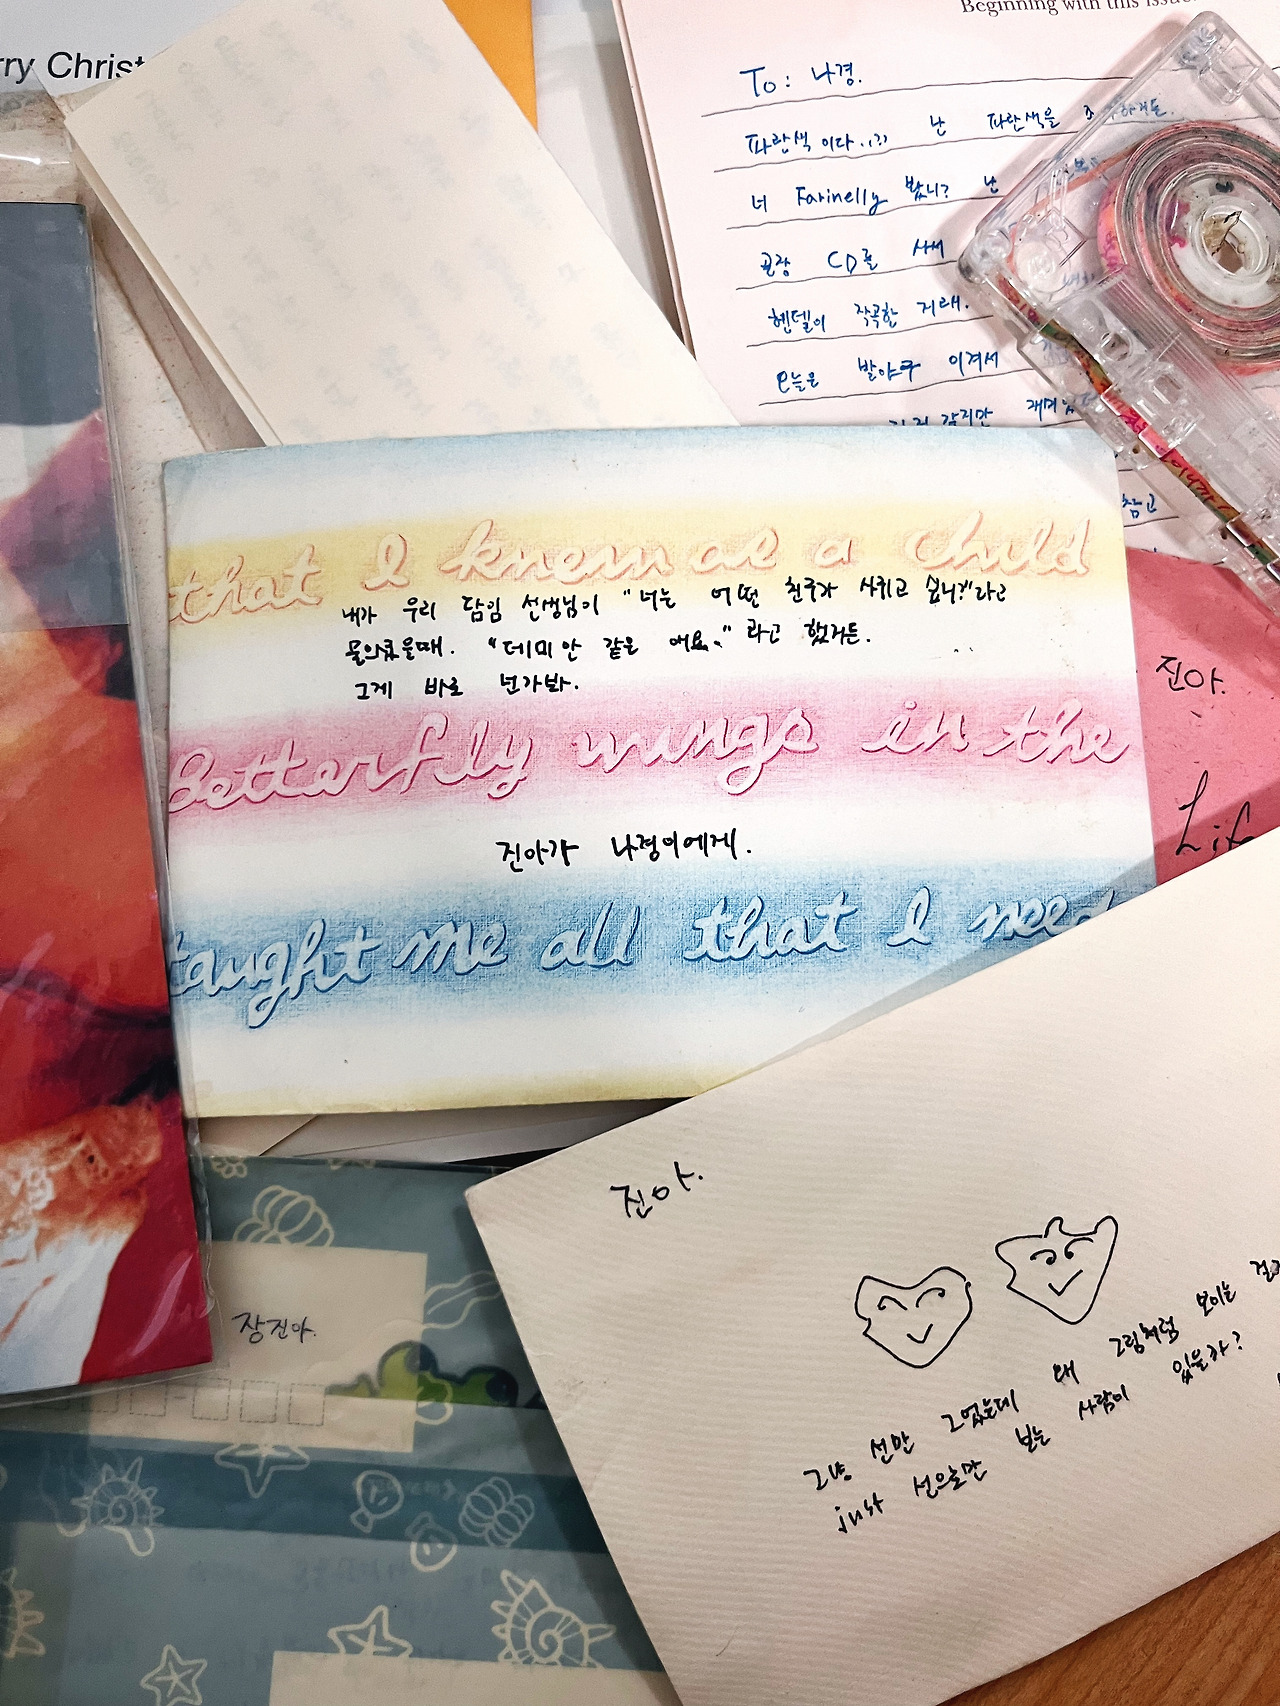 rry Christ
Beginning with this issue
To : 나경.
파란색이다..!?) 난 파란색을
너 Farinelly 봤니? 난
곧장 CD를 사서
헨델이 작곡한 거래.
오늘은 발야구 이겨서
참고
that I knew as a child
내가 우리 담임 선생님이 "너는 어떤 친구가 사귀고 싶니?"라고
물의셨을때. "데미안 같은 애요." 라고 했거든.
그게 바로 넌가봐.
Betterfly wings in the
진아가 나경이에게.
taught me all that I need
진아.
Life
진아.
그냥 선만 그었는데 왜 그림처럼 보이는
just 선으로만 보는 사람이 있을까?
장진아.